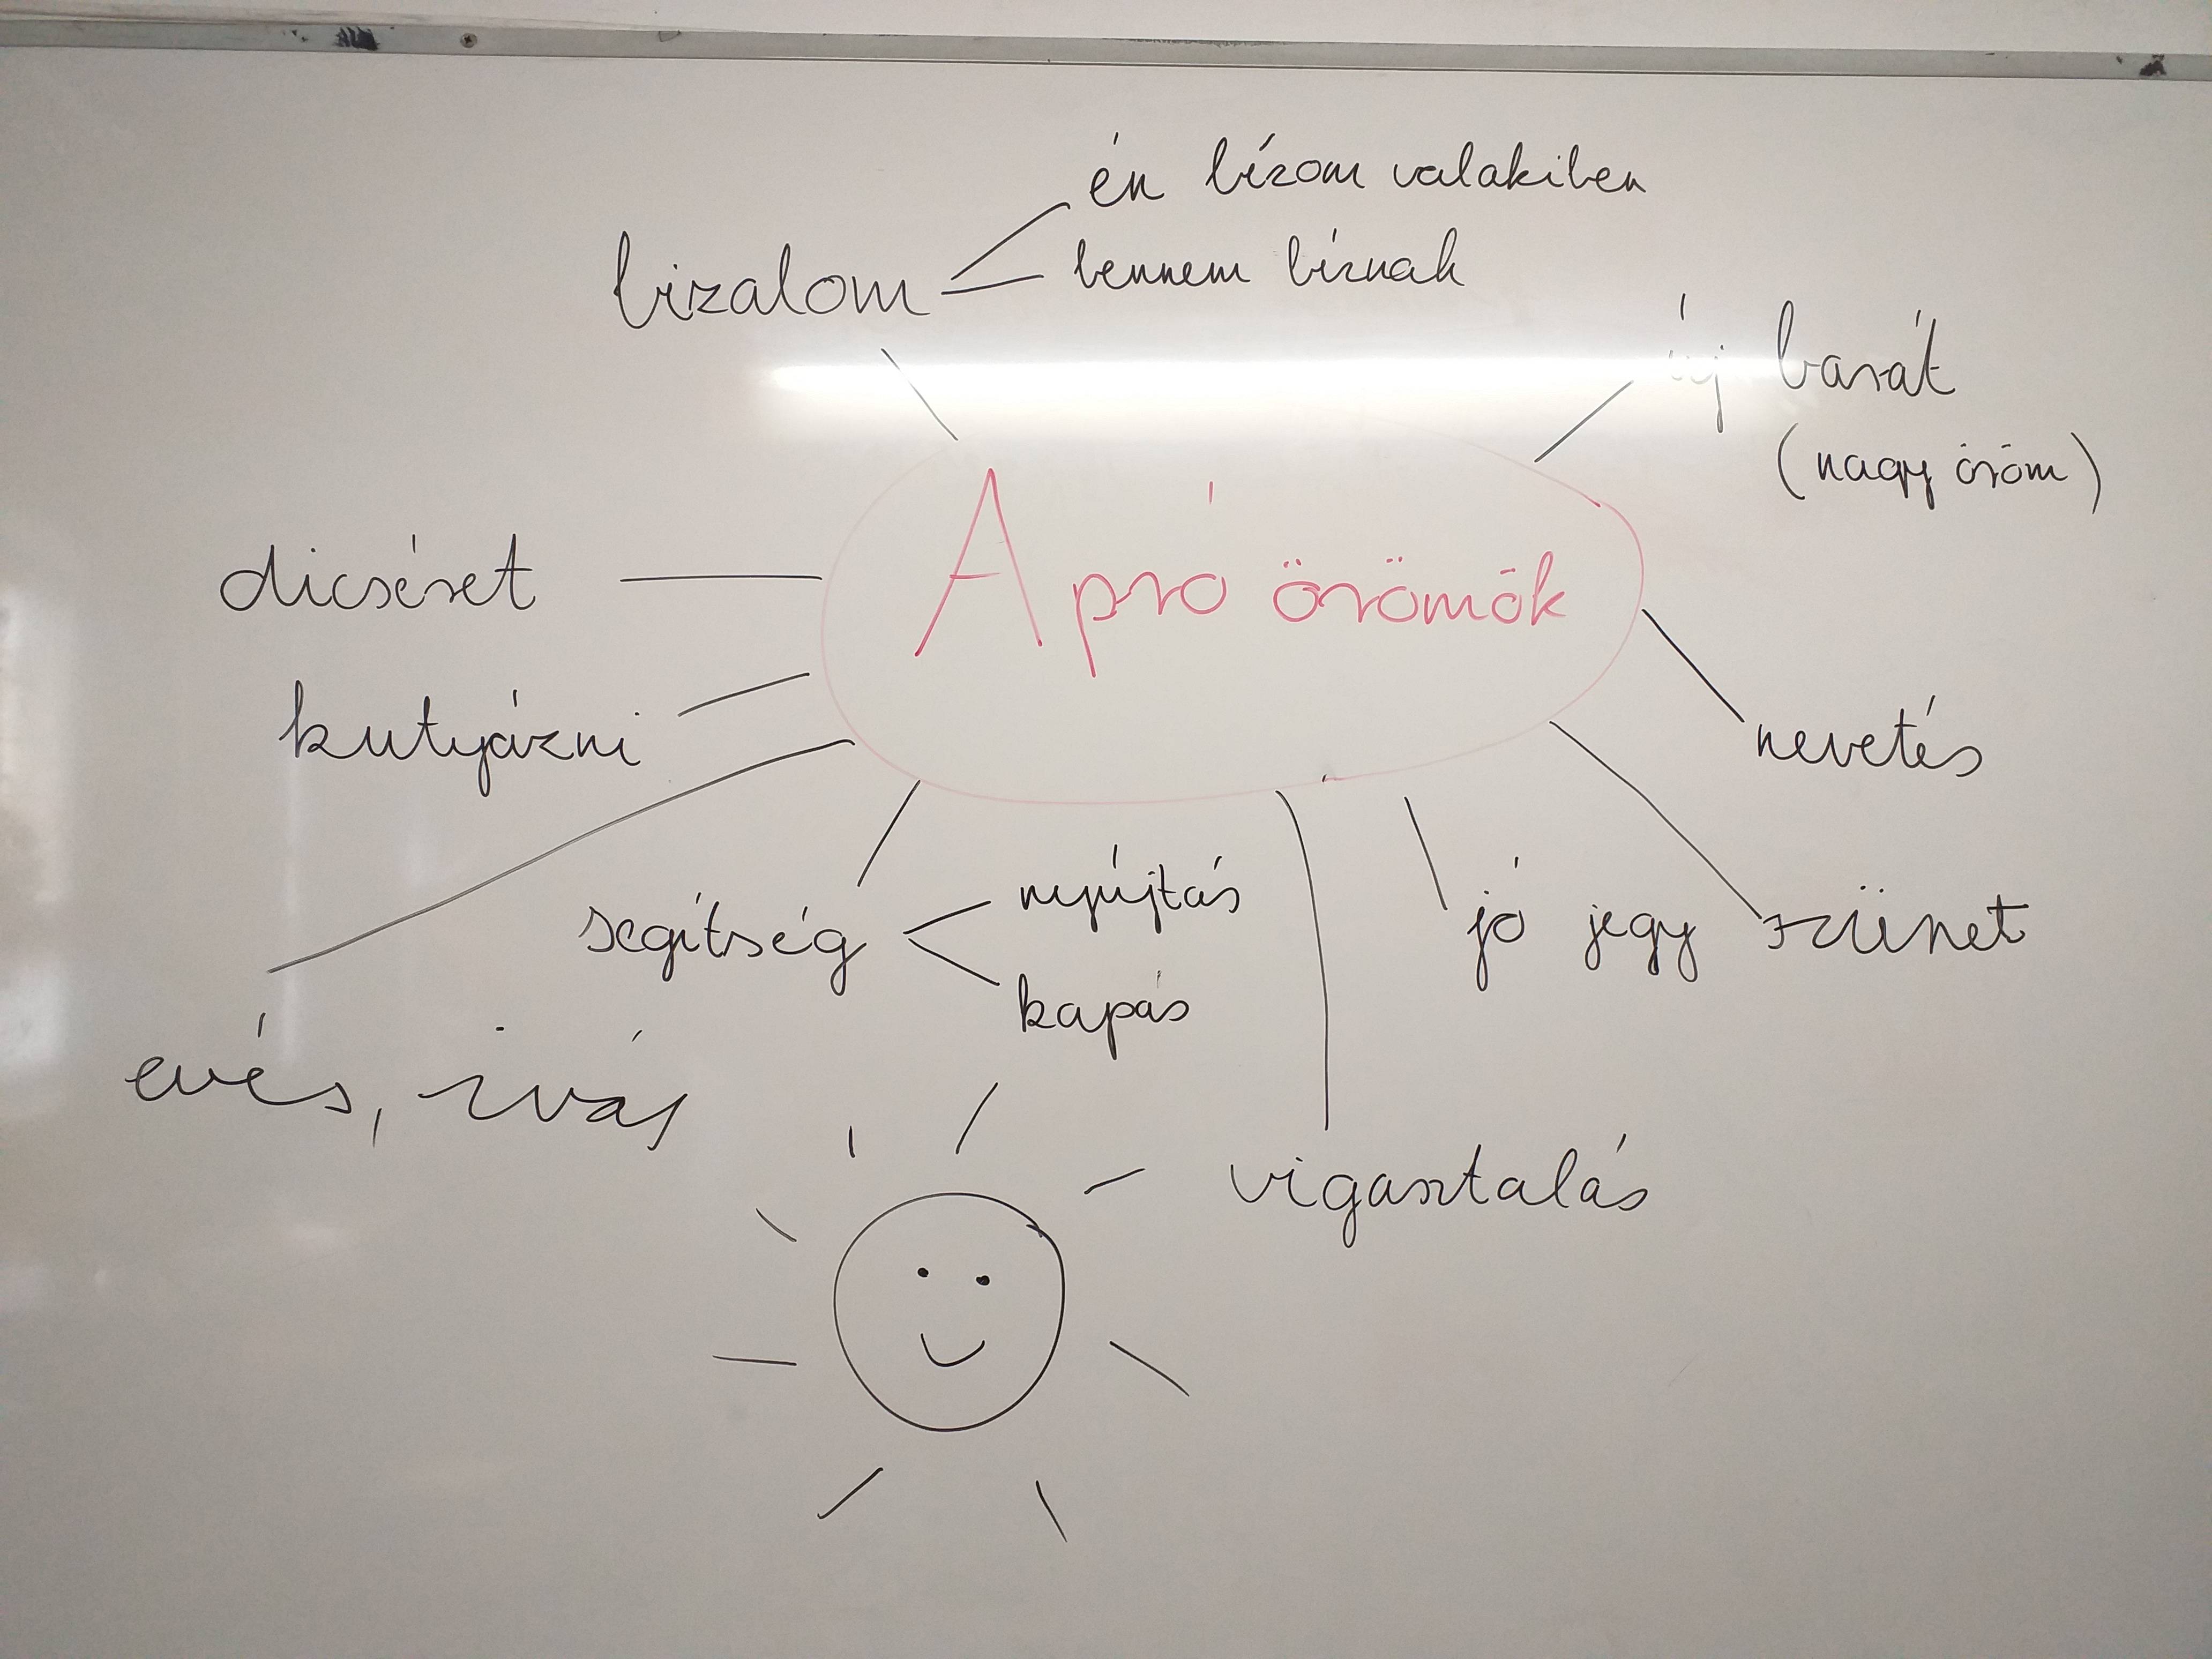 én bízom valakiben
bizalom
bennem bíznak
új barát
(nagy öröm)
Apró örömök
dicséret
kutyázni
nevetés
segítség
nyújtás
kapás
jó jegy
szünet
evés, ivás
vigasztalás